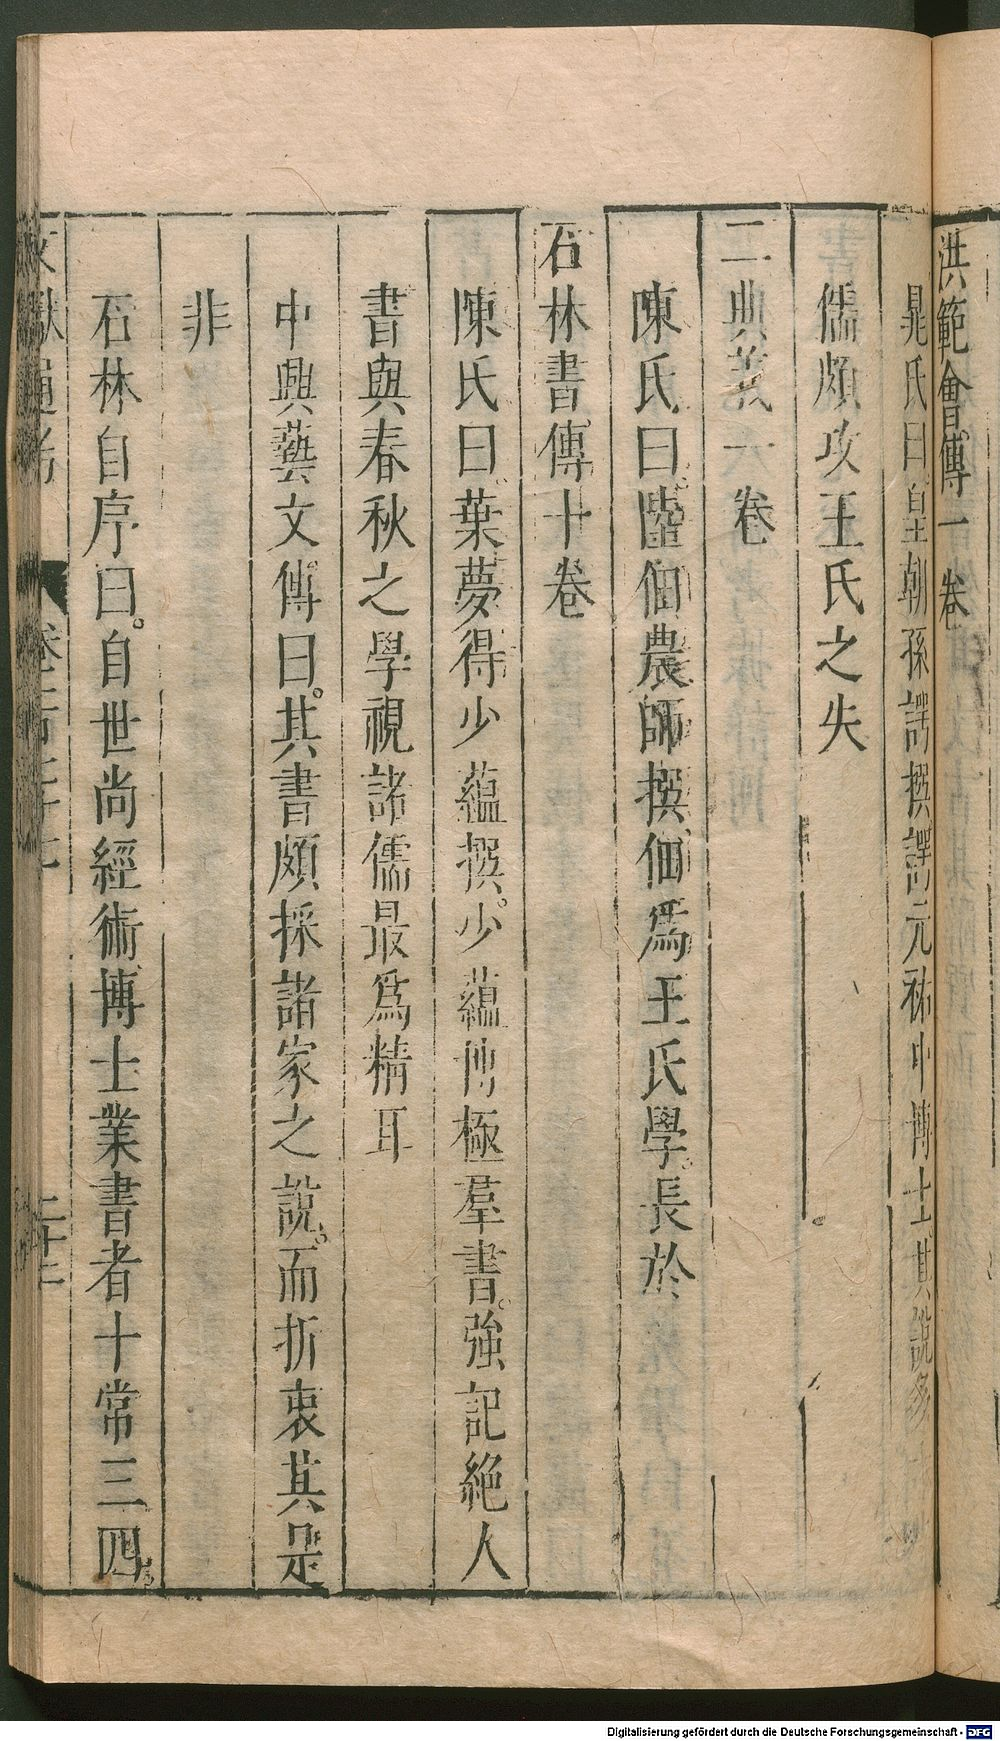 洪範會傳一卷
晁氏曰皇朝孫諤撰諤元祐中博士其說多
儒頗攻王氏之失
二典義一卷
陳氏曰陸佃農師撰佃爲王氏學長於
石林書傳十卷
陳氏曰葉夢得少蘊撰少蘊博極羣書強記絕人
書與春秋之學視諸儒最爲精耳
中興藝文傳曰其書頗採諸家之說而折衷其是
非
石林自序曰自世尚經術博士業書者十常三四
Digitalisierung gefördert durch die Deutsche Forschungsgemeinschaft - DFG